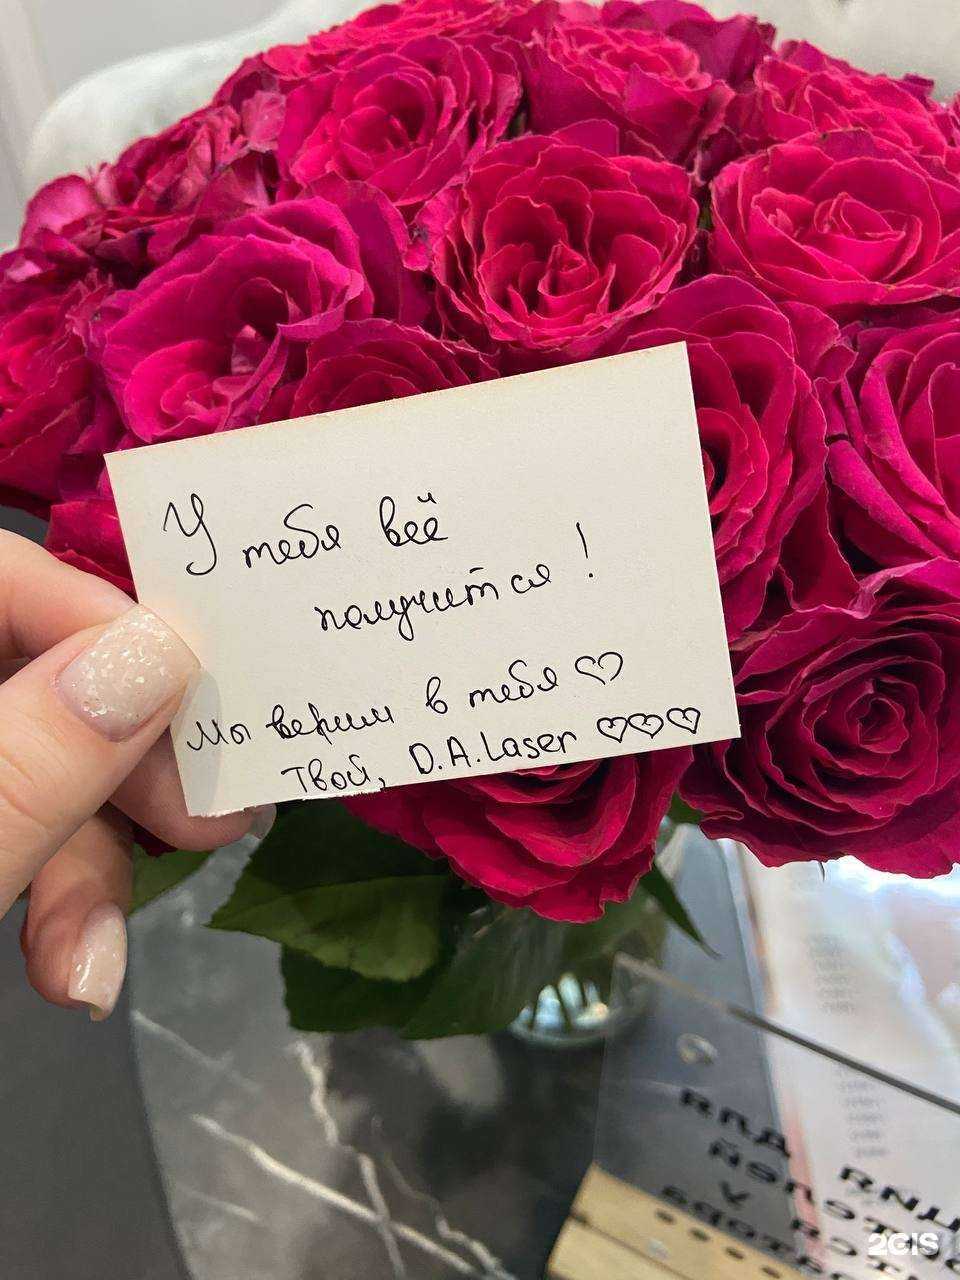 У тебя всё
получится!
Мы верим в тебя ♡
Твой, D.A.Laser ♡♡♡
2GIS